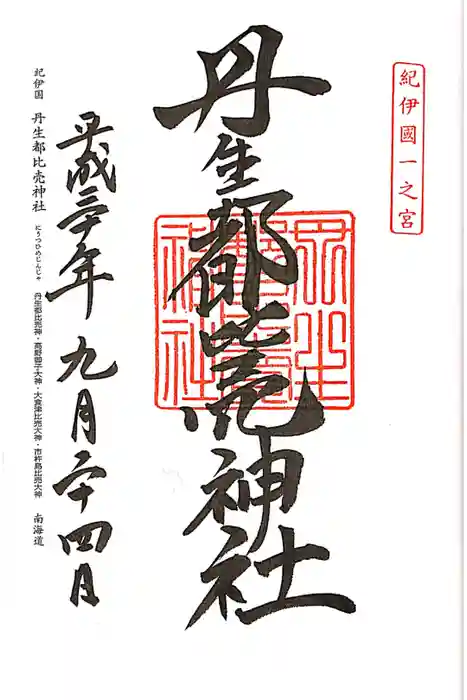 紀伊國一之宮
丹生都比売神社
平成三十年 九月二十四日
紀伊国 丹生都比売神社 にうつひめじんじゃ 丹生都比売大神・高野御子大神・大食津比売大神・市杵島比売大神 南海道